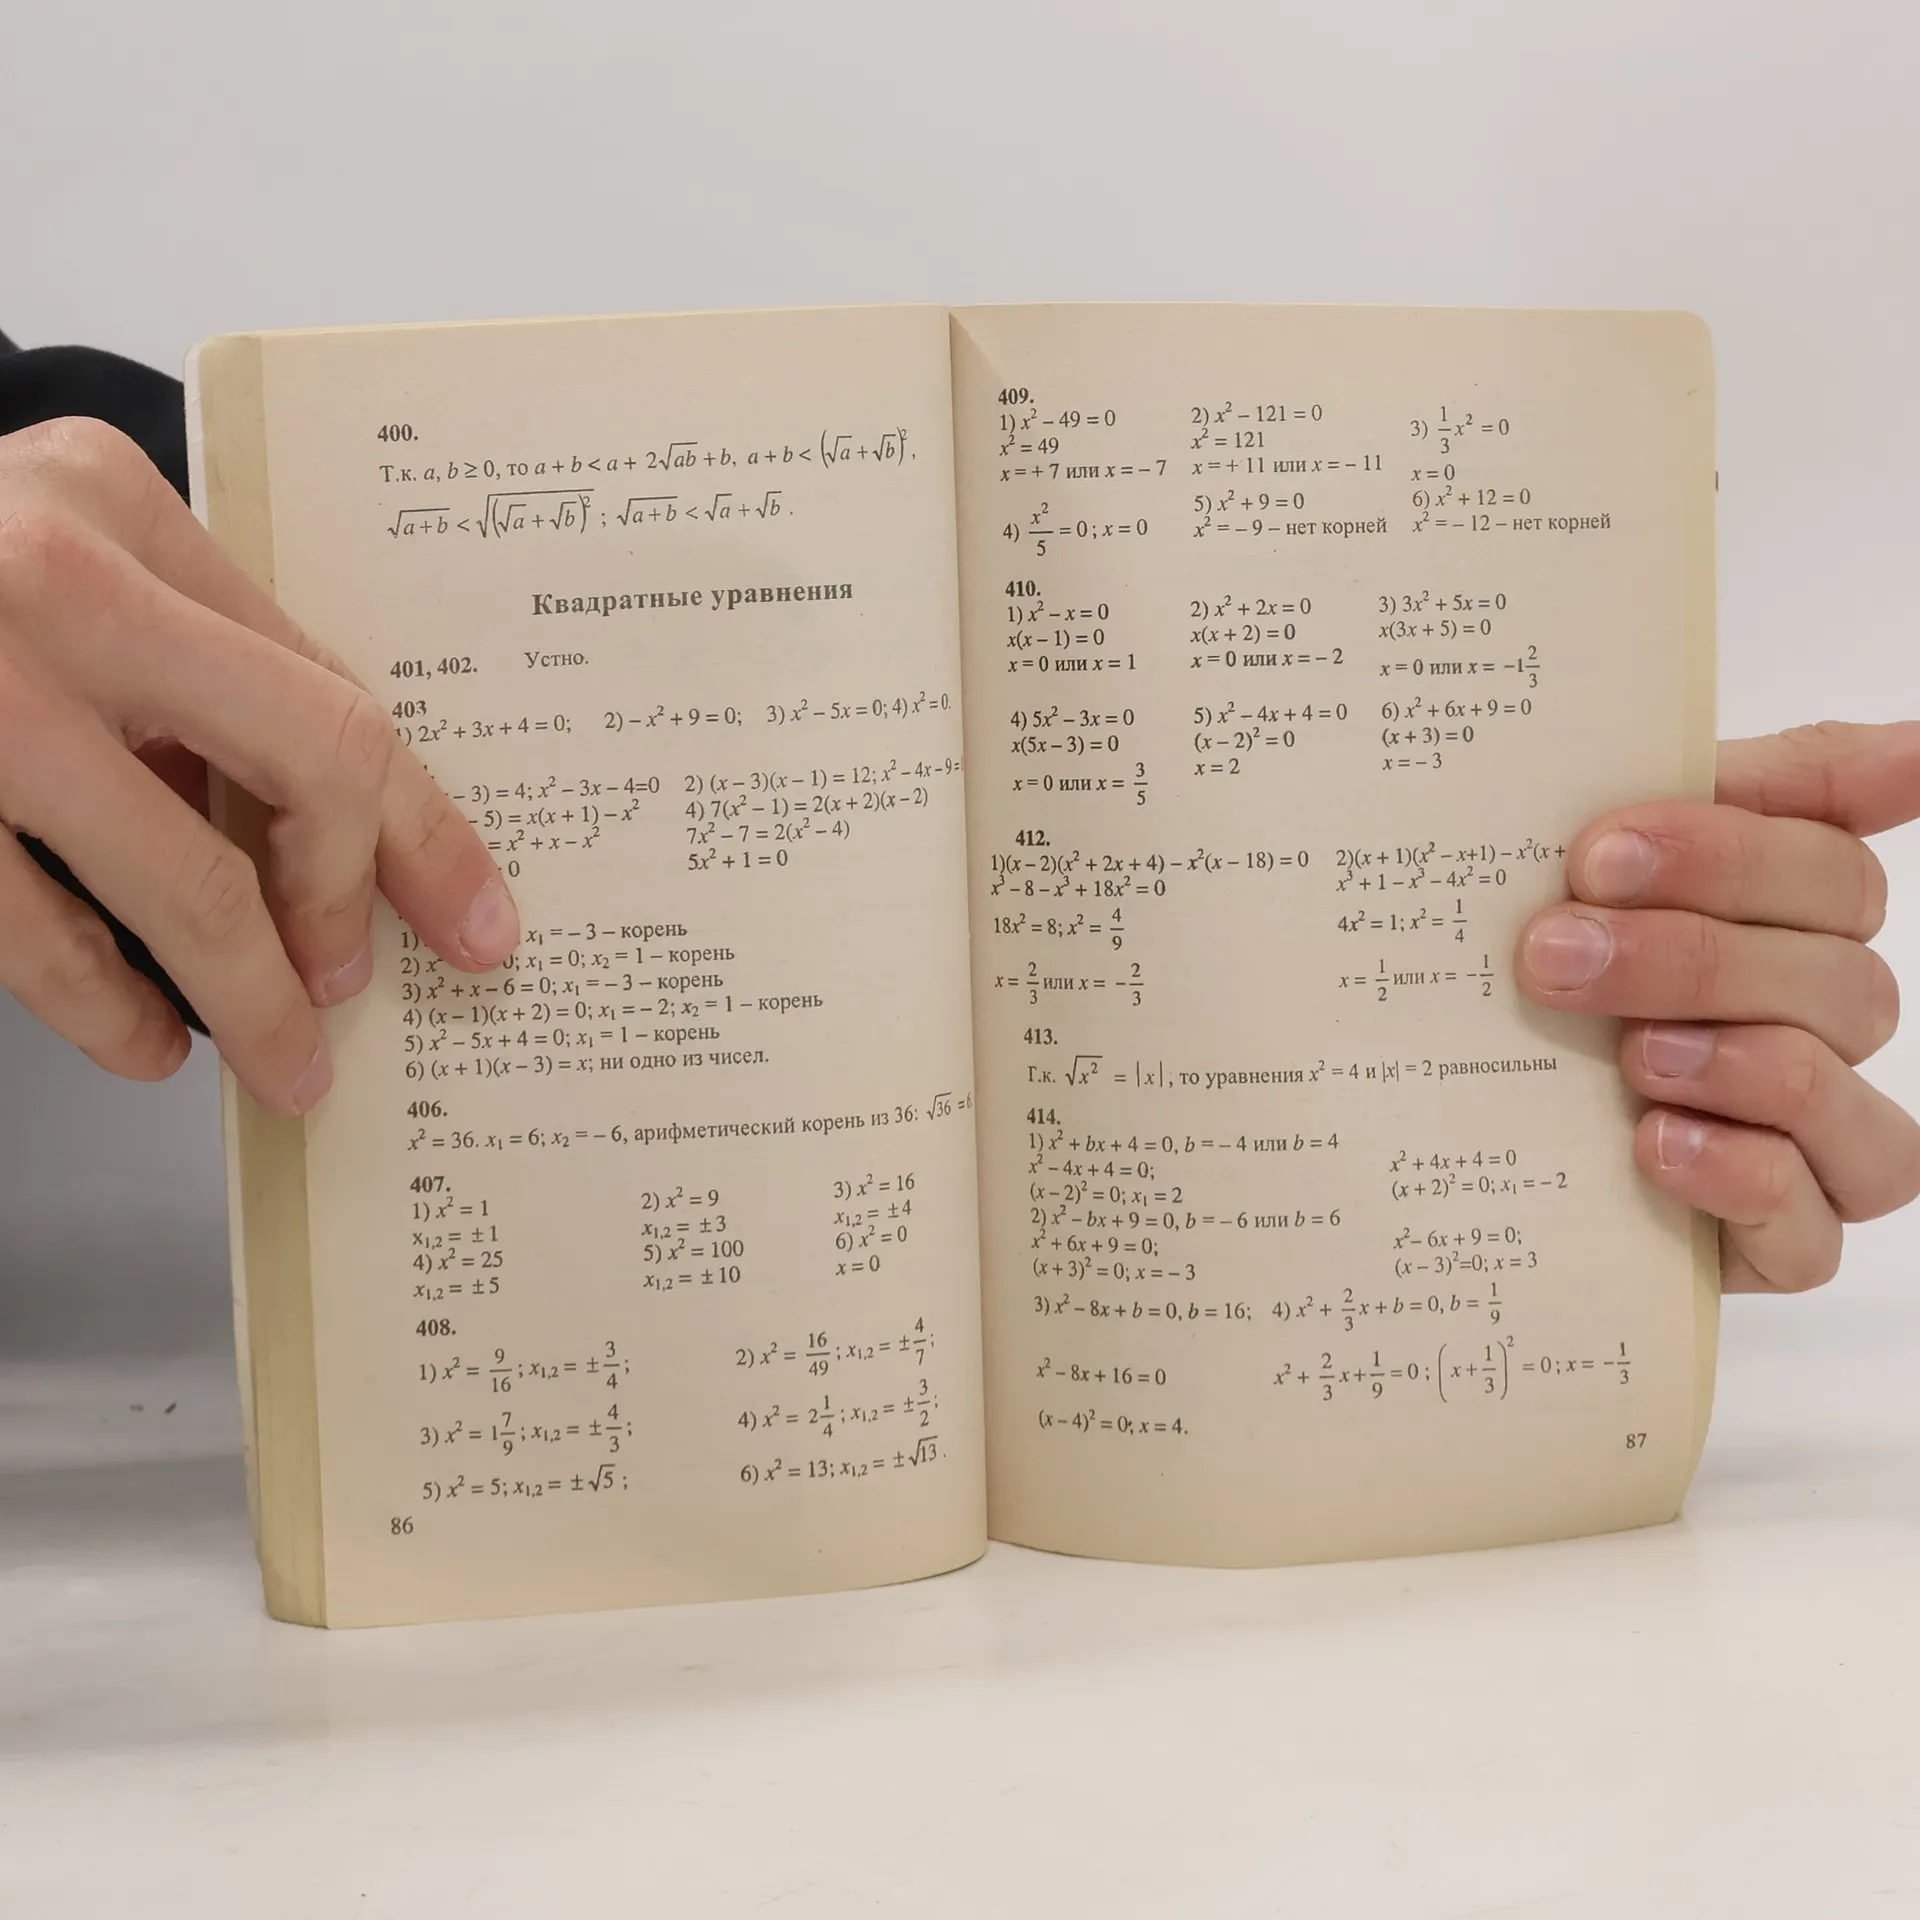 400.
Т.к. a, b ≥ 0, то a + b < a + 2√ab + b, a + b < (√a + √b)²,
√a+b < √(√a + √b)²; √a+b < √a + √b.
Квадратные уравнения
401, 402. Устно.
403
1) 2x² + 3x + 4 = 0; 2) – x² + 9 = 0; 3) x² – 5x = 0; 4) x² = 0.
– 3) = 4; x² – 3x – 4=0 2) (x – 3)(x – 1) = 12; x² – 4x – 9=
– 5) = x(x + 1) – x² 4) 7(x² – 1) = 2(x + 2)(x – 2)
= x² + x – x² 7x² – 7 = 2(x² – 4)
0 5x² + 1 = 0
1) x₁ = – 3 – корень
2) x² 0; x₁ = 0; x₂ = 1 – корень
3) x² + x – 6 = 0; x₁ = – 3 – корень
4) (x – 1)(x + 2) = 0; x₁ = – 2; x₂ = 1 – корень
5) x² – 5x + 4 = 0; x₁ = 1 – корень
6) (x + 1)(x – 3) = x; ни одно из чисел.
406.
x² = 36. x₁ = 6; x₂ = – 6, арифметический корень из 36: √36 = 6
407.
1) x² = 1 2) x² = 9 3) x² = 16
x₁,₂ = ±1 x₁,₂ = ±3 x₁,₂ = ±4
4) x² = 25 5) x² = 100 6) x² = 0
x₁,₂ = ±5 x₁,₂ = ±10 x = 0
408.
1) x² = 9/16; x₁,₂ = ±3/4; 2) x² = 16/49; x₁,₂ = ±4/7;
3) x² = 1 7/9; x₁,₂ = ±4/3; 4) x² = 2 1/4; x₁,₂ = ±3/2;
5) x² = 5; x₁,₂ = ±√5; 6) x² = 13; x₁,₂ = ±√13.
86
409.
1) x² – 49 = 0 2) x² – 121 = 0 3) 1/3 x² = 0
x² = 49 x² = 121
x = + 7 или x = – 7 x = + 11 или x = – 11 x = 0
4) x²/5 = 0; x = 0 5) x² + 9 = 0 6) x² + 12 = 0
x² = – 9 – нет корней x² = – 12 – нет корней
410.
1) x² – x = 0 2) x² + 2x = 0 3) 3x² + 5x = 0
x(x – 1) = 0 x(x + 2) = 0 x(3x + 5) = 0
x = 0 или x = 1 x = 0 или x = – 2 x = 0 или x = –1 2/3
4) 5x² – 3x = 0 5) x² – 4x + 4 = 0 6) x² + 6x + 9 = 0
x(5x – 3) = 0 (x – 2)² = 0 (x + 3) = 0
x = 0 или x = 3/5 x = 2 x = – 3
412.
1)(x – 2)(x² + 2x + 4) – x²(x – 18) = 0 2)(x + 1)(x² – x+1) – x²(x +
x³ – 8 – x³ + 18x² = 0 x³ + 1 – x³ – 4x² = 0
18x² = 8; x² = 4/9 4x² = 1; x² = 1/4
x = 2/3 или x = –2/3 x = 1/2 или x = –1/2
413.
Т.к. √x² = |x|, то уравнения x² = 4 и |x| = 2 равносильны
414.
1) x² + bx + 4 = 0, b = – 4 или b = 4
x² – 4x + 4 = 0; x² + 4x + 4 = 0
(x – 2)² = 0; x₁ = 2 (x + 2)² = 0; x₁ = – 2
2) x² – bx + 9 = 0, b = – 6 или b = 6
x² + 6x + 9 = 0; x² – 6x + 9 = 0;
(x + 3)² = 0; x = – 3 (x – 3)²=0; x = 3
3) x² – 8x + b = 0, b = 16; 4) x² + 2/3 x + b = 0, b = 1/9
x² – 8x + 16 = 0 x² + 2/3 x + 1/9 = 0; (x + 1/3)² = 0; x = –1/3
(x – 4)² = 0; x = 4.
87